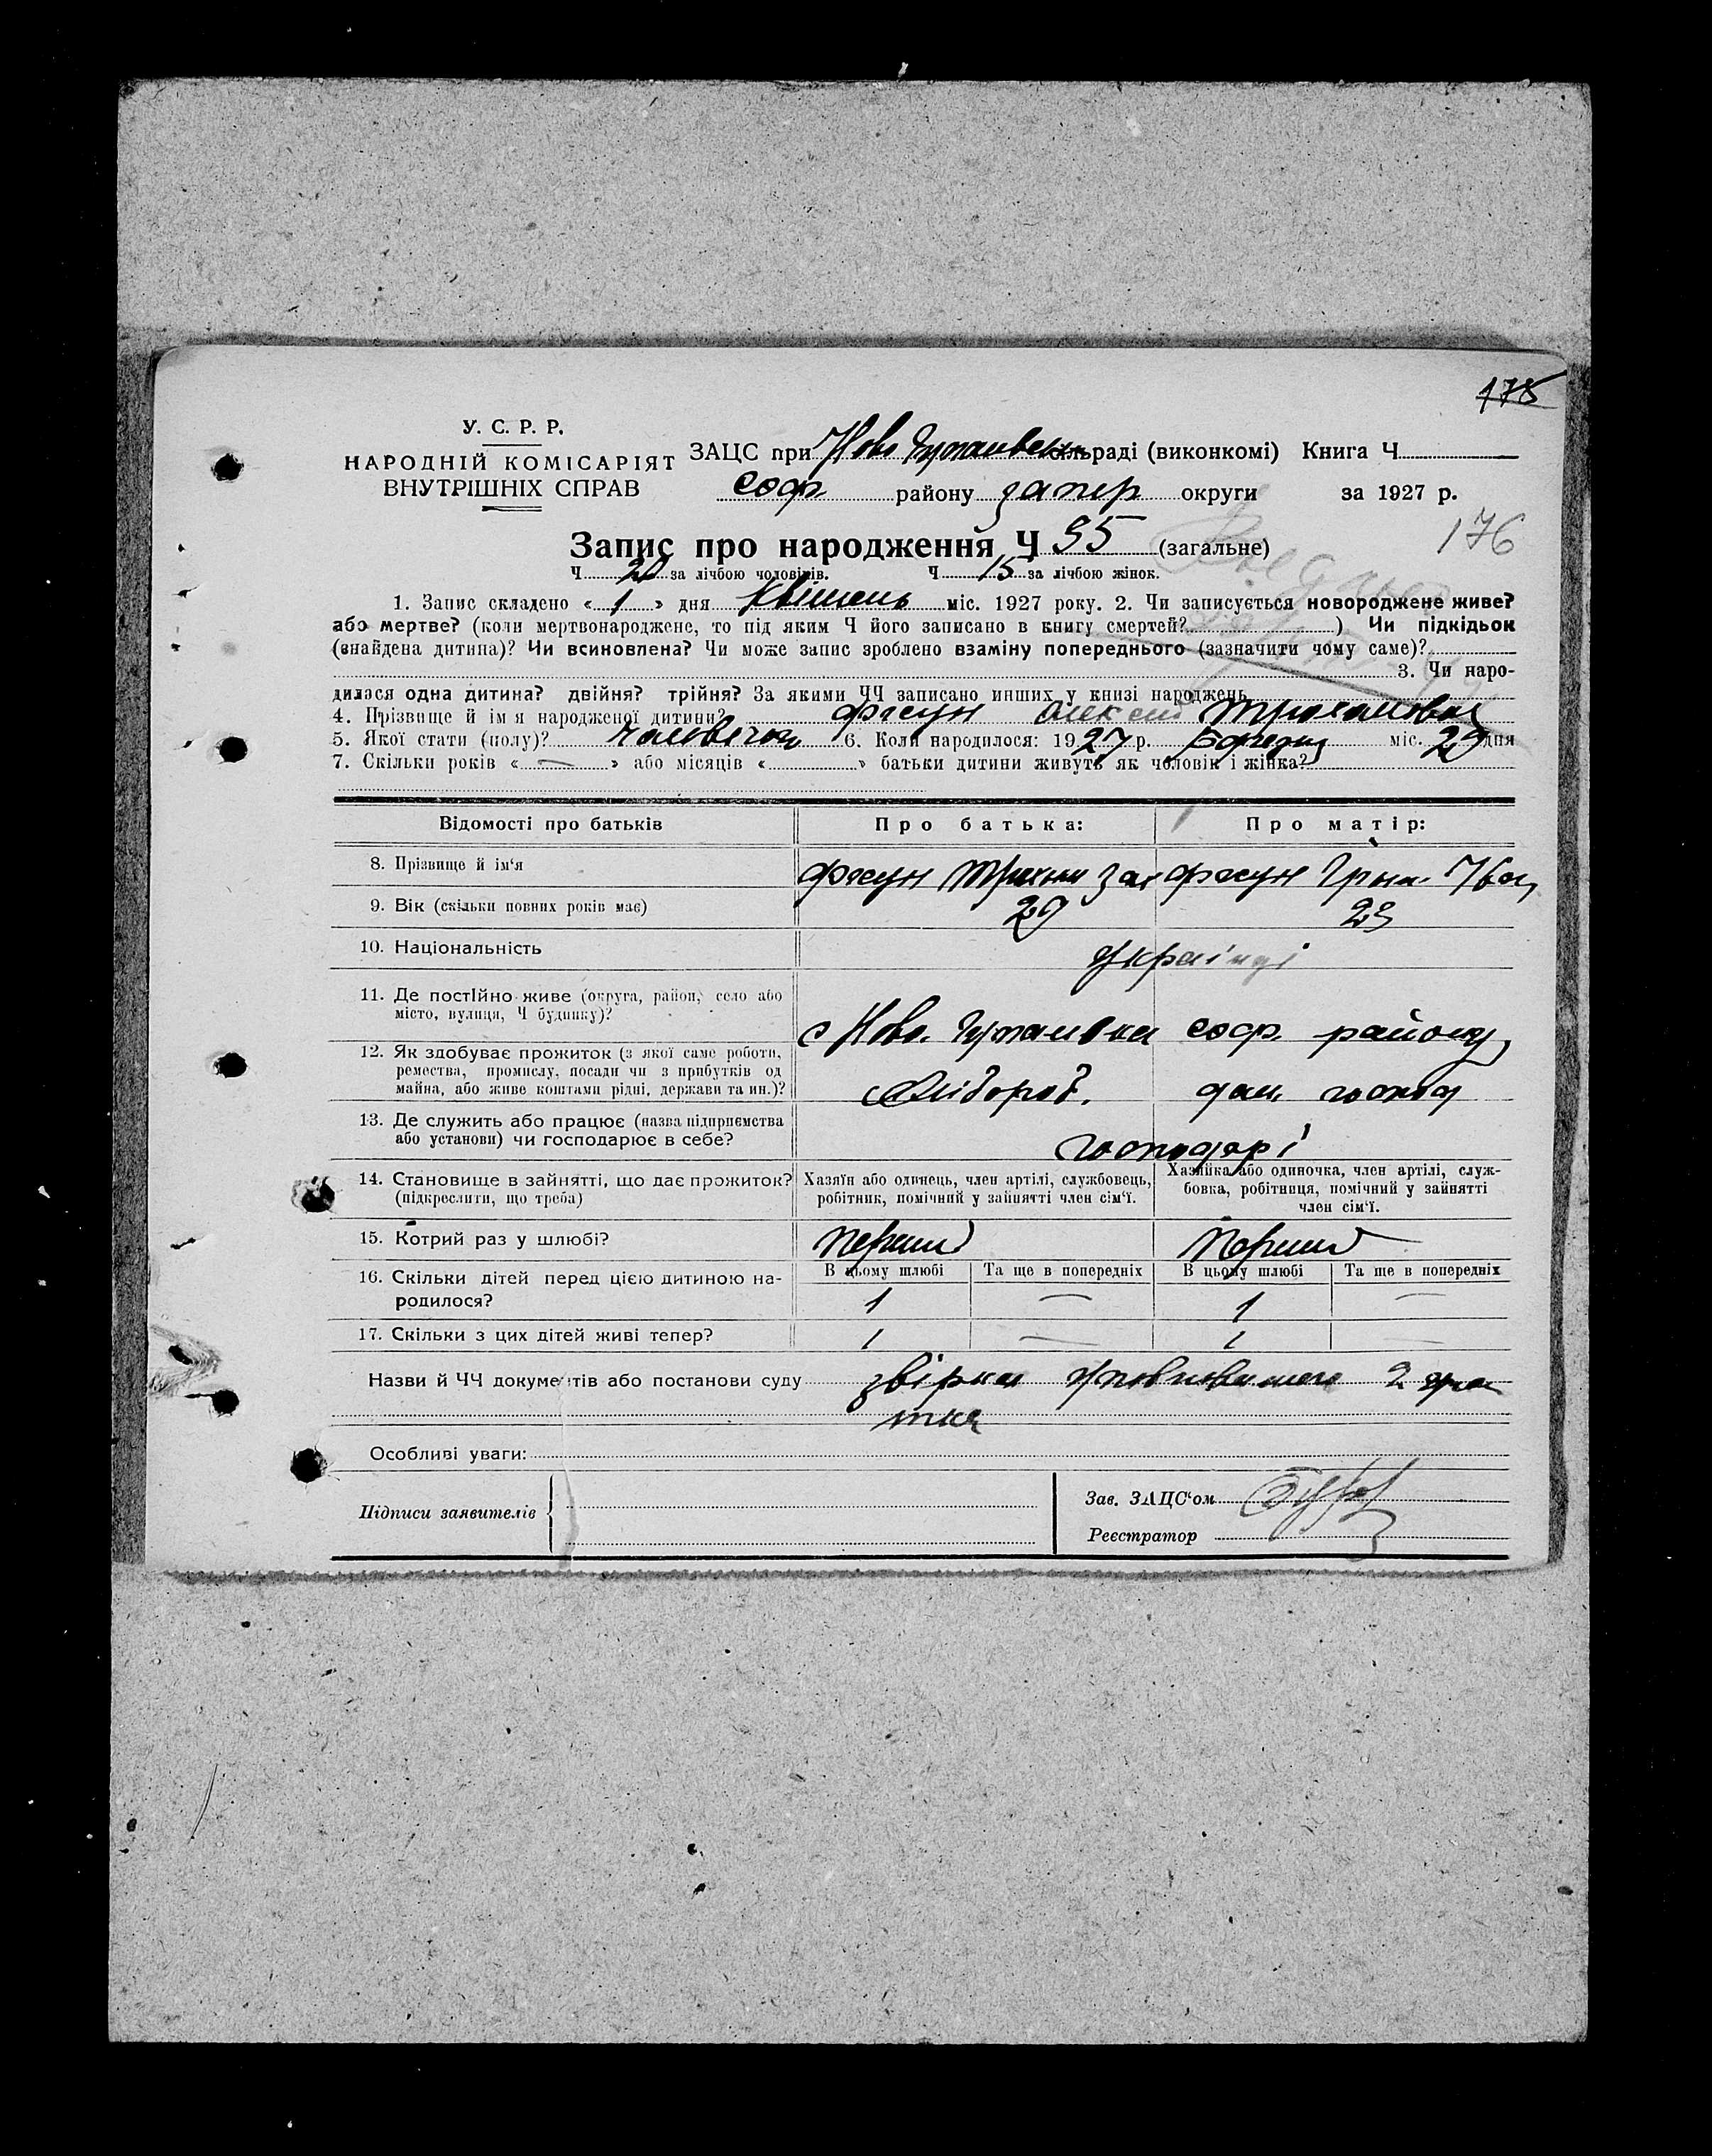 178
У. С. Р. Р.
НАРОДНІЙ КОМІСАРІЯТ
ВНУТРІШНІХ СПРАВ
ЗАЦС при Ново раді (виконкомі) Книга Ч
соф. району запор округи за 1927 р.
176
Запис про народження Ч 35 (загальне)
Ч 20 за лічбою чоловіків. Ч 15 за лічбою жінок.
1. Запис складено « 1 » дня Квітень міс. 1927 року. 2. Чи записується новороджене живе?
або мертве? (коли мертвонароджене, то під яким Ч його записано в книгу смертей? ) Чи підкідьок
(знайдена дитина)? Чи всиновлена? Чи може запис зроблено взаміну попереднього (зазначити чому саме)?
3. Чи наро-
дилася одна дитина? двійня? трійня? За якими ЧЧ записано инших у книзі народжень
4. Прізвище й ім'я народженої дитини? Олексій
5. Якої стати (полу)? Чоловічої 6. Коли народилося: 1927 р. Березня міс. 29 дня
7. Скільки років « — » або місяців « » батьки дитини живуть як чоловік і жінка?
Відомості про батьків Про батька: Про матір:
8. Прізвище й ім'я
9. Вік (скільки повних років має) 29 23
10. Національність Українці
11. Де постійно живе (округа, район, село або
місто, вулиця, Ч будинку)? с Ново. соф. району
12. Як здобуває прожиток (з якої саме роботи,
ремества, промислу, посади чи з прибутків од
майна, або живе коштами рідні, держави та ин.)? Хлібороб. дом. господ
13. Де служить або працює (назва підприємства
або установи) чи господарює в себе? господарі
14. Становище в зайнятті, що дає прожиток?
(підкреслити, що треба)
Хазяїн або одинець, член артілі, службовець,
робітник, помічний у зайнятті член сім'ї.
Хазяйка або одиночка, член артілі, служ-
бовка, робітниця, помічний у зайнятті
член сім'ї.
15. Котрий раз у шлюбі? Перший Перший
В цьому шлюбі Та ще в попередніх В цьому шлюбі Та ще в попередніх
16. Скільки дітей перед цією дитиною на-
родилося? 1 — 1 —
17. Скільки з цих дітей живі тепер? 1 — 1 —
Назви й ЧЧ документів або постанови суду звірка 2
Особливі уваги:
Підписи заявителів
Зав. ЗАЦС'ом
Реєстратор